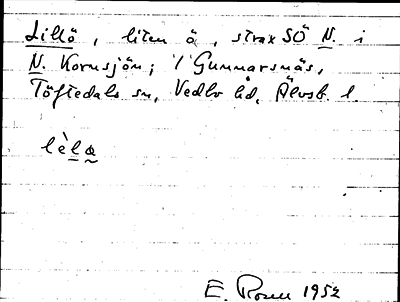 Lillö, liten ö, strax SÖ N. i
N. Kornsjön; / Gunnarsnäs,
Töftedals sn, Vedbo hd, Älvsb. l.
lèlə
E. Rosell 1952